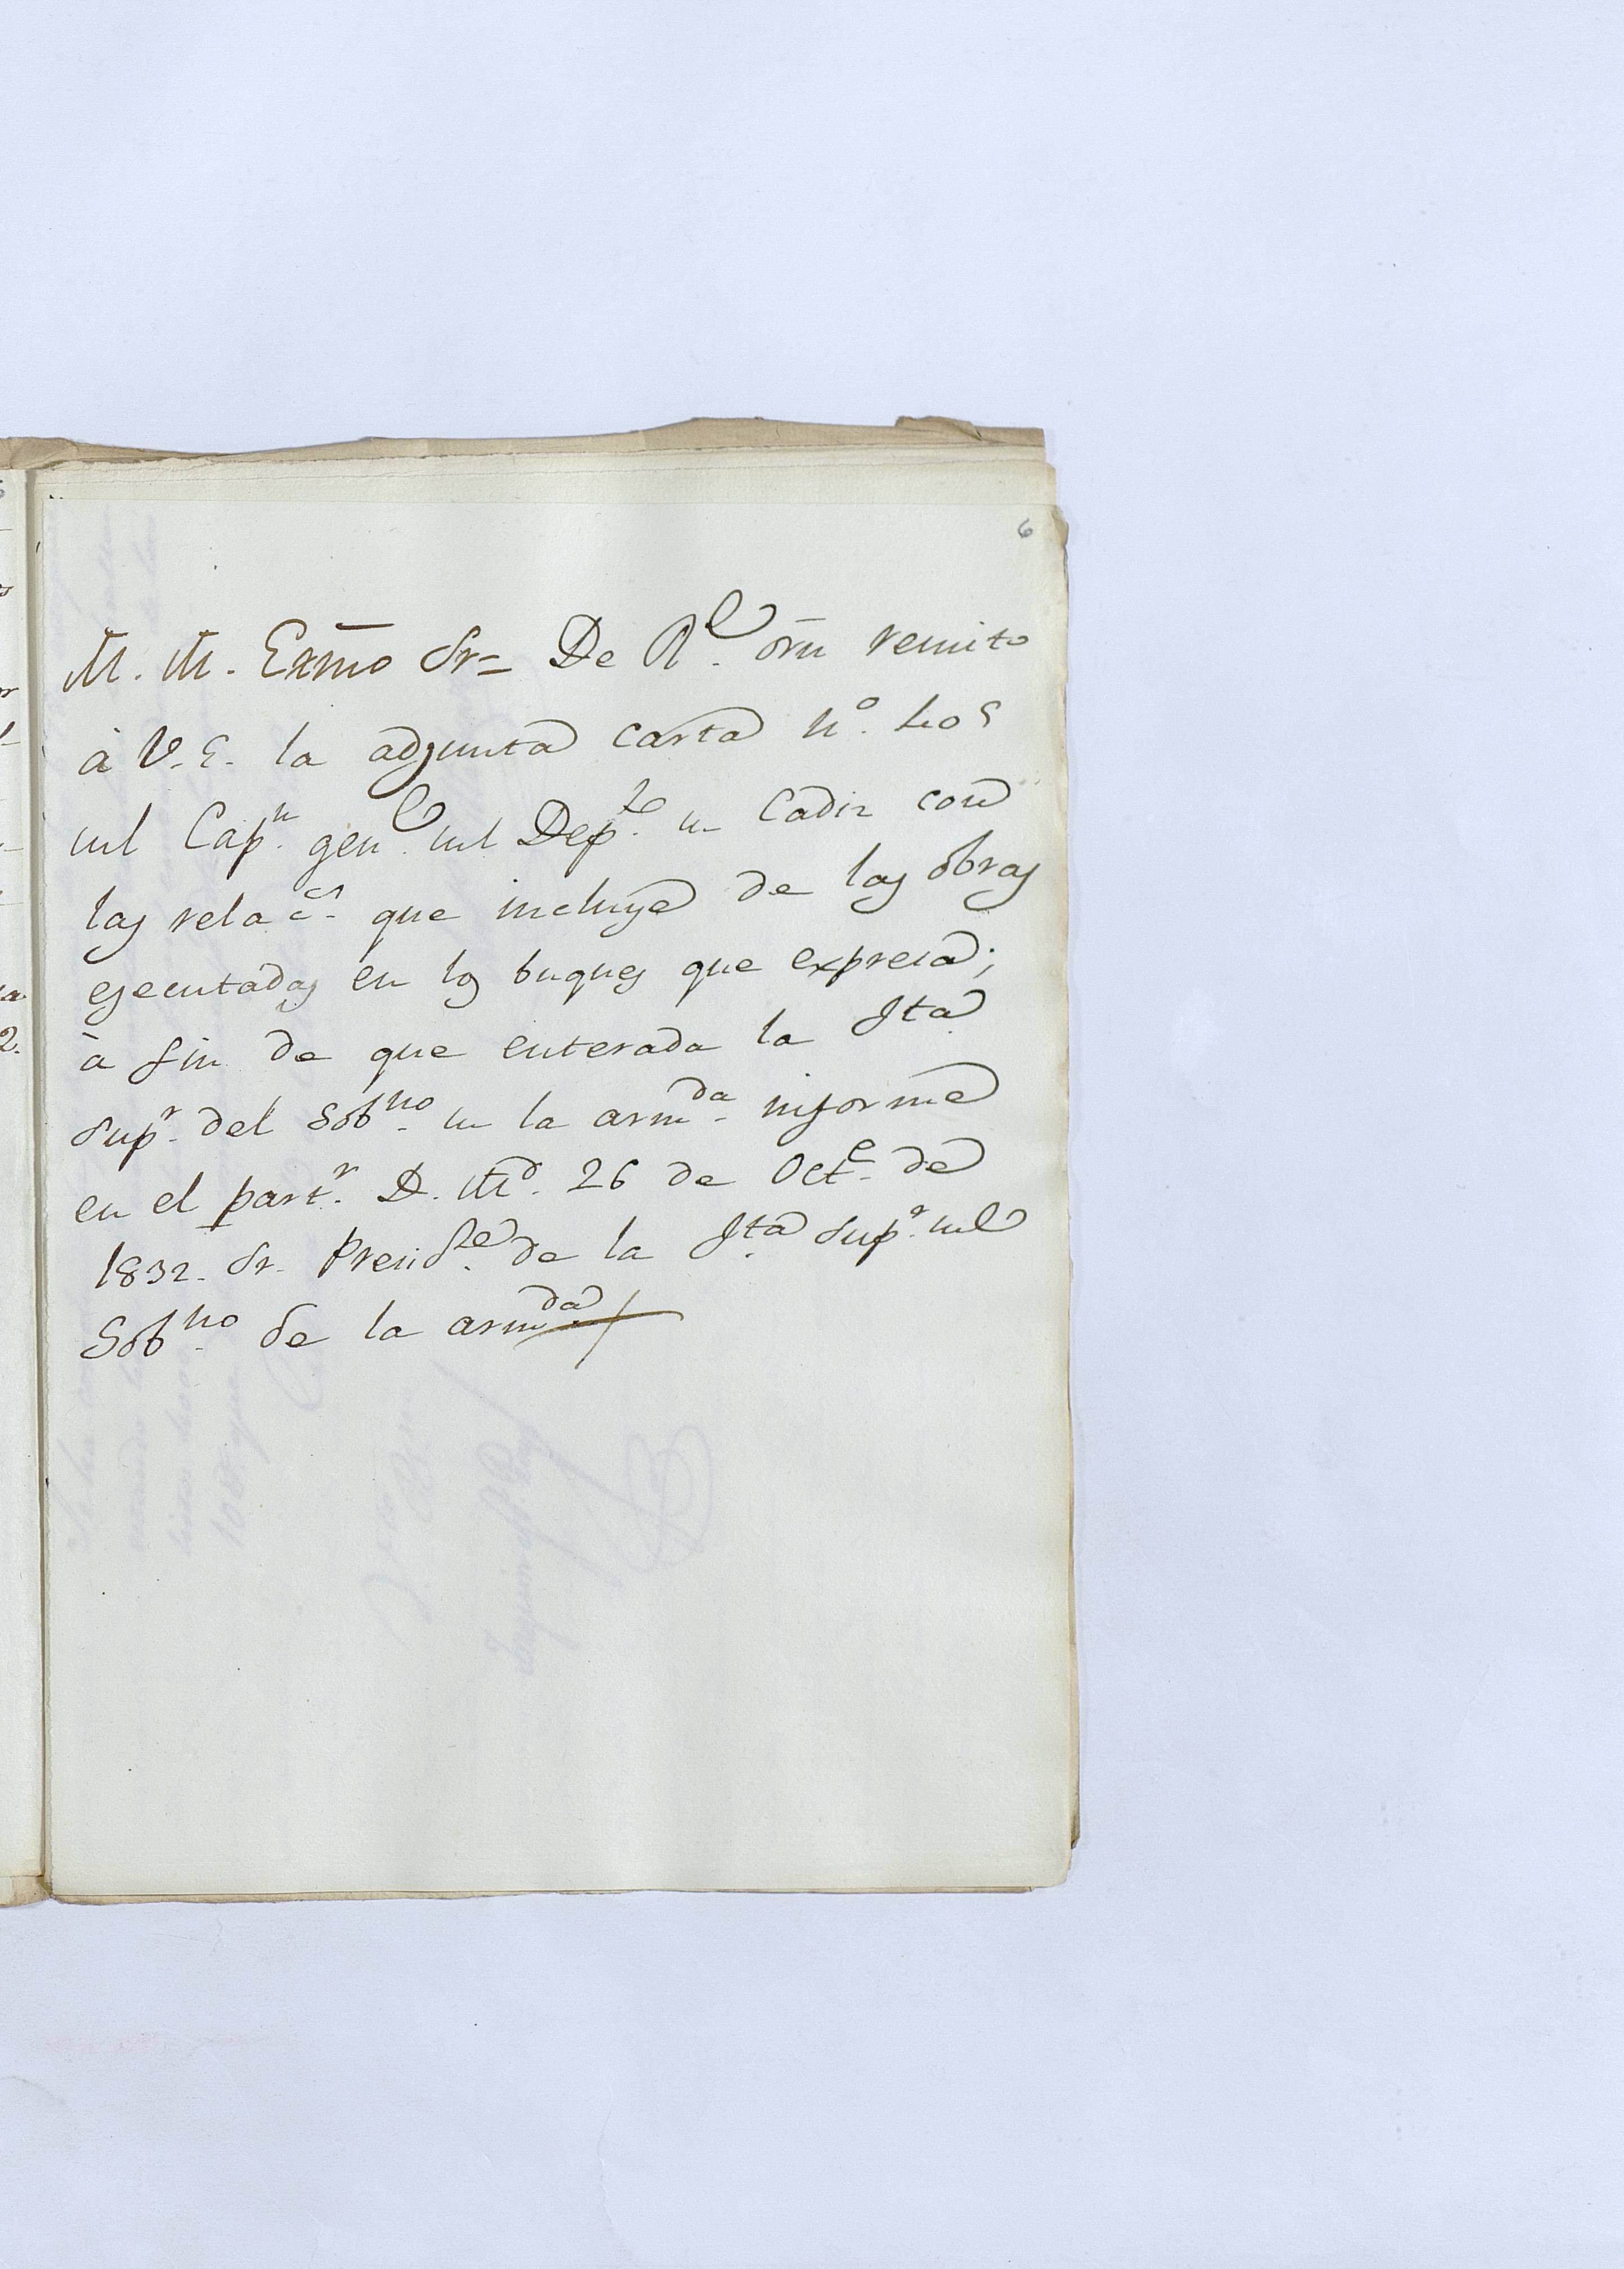 6
M. M. Exmo Sr= De Rl. orn remito
à V.E. la adjunta carta nº. 405
del Capn. genl. del Depto. de Cadiz con
las relacs. que incluye de las obras
egecutadas en los buques que expresa;
à fin de que enterada la Jta
Supr. del Gobno. de la armda. informe
en el partr. D. Md. 26 de Octe. de
1832. Sr. Presidte. de la Jta. Supr. del
Gobno. de la armda.